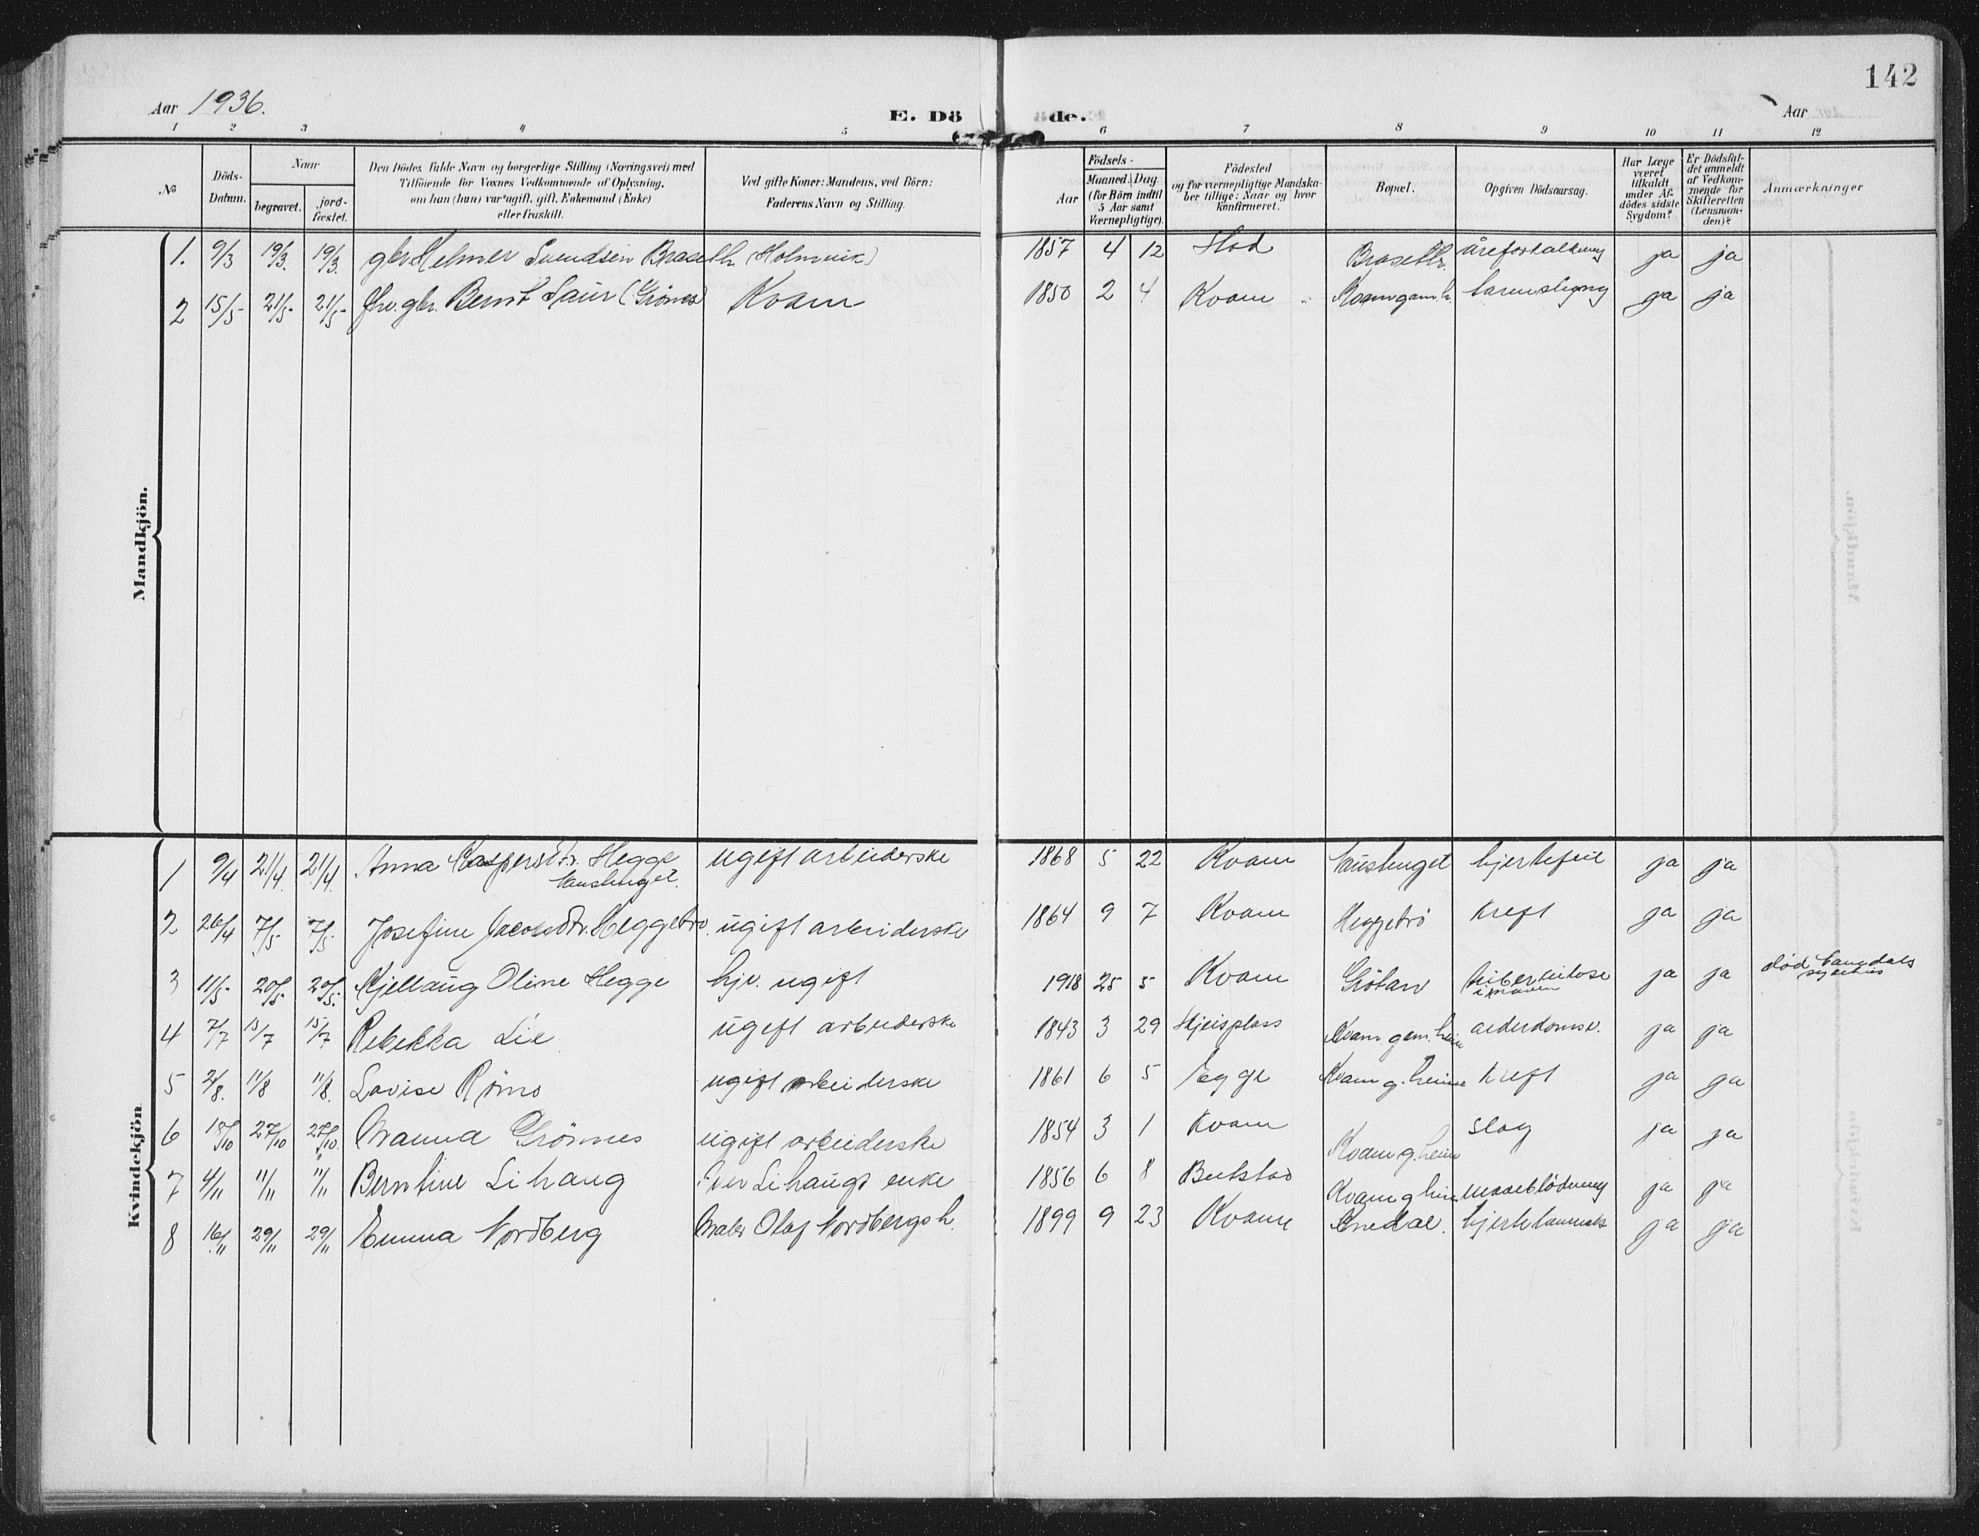 142
Aar 1936.
E. Dö de.
Aar
1 2 3 4 5 6 7 8 9 10 11 12
No
Döds-Datum.
Naar
begravet.
jord-fæstet.
Den Dödes fulde Navn og borgerlige Stilling (Næringsvei) med Tilföiende for Voxnes Vedkommende af Oplysning, om han (hun) var ugift, gift, Enkemand (Enke) eller fraskilt.
Ved gifte Koner: Mandens, ved Börn: Faderens Navn og Stilling.
Födsels-
Aar
Maaned. Dag
(for Börn indtil 5 Aar samt Værnepligtige).
Födested og for værnepligtige Mandska-ber tillige: Naar og hvor konfirmeret.
Bopæl.
Opgiven Dödsaarsag.
Har Læge været tilkaldt under Af-dödes sidste Sygdom?
Er Dödsfal-det anmeldt af Vedkom-mende for Skifteretten (Lensman-den)?
Anmærkninger
Mandkjön.
1. 9/3 19/3. 19/3. gbr Helmer Svendsen Braseth (Holmvik) 1857 4 12 Stod Braseth. åreforkalkning ja ja
2 15/5 21/5 21/5 fhv. gbr. Bernt Saur (Grönes) Kvam 1850 2 4 Kvam Kvam gam.h. tarmslyng ja ja
Kvindekjön
1 9/4 21/4. 21/4. Anna Kaspersdtr. Hegge ugift arbeiderske 1868 5 22 Kvam hjertefeil ja ja
2 26/4 7/5 7/5 Josefine Jacobsdtr. Heggetrø. ugift arbeiderske 1864 9 7 Kvam Heggetrö kreft ja ja
3 11/5 20/5 20/5. Kjellaug Oline Hegge hjv. ugift 1918 25 5 Kvam Grötan tuberkulose i maven ja ja död Namdals sykehus
4 7/7 15/7 15/7 Rebekka Lie ugift arbeiderske 1843 3 29 Kvam gam.heim alderdomsv. ja ja
5 2/8. 11/8 11/8. Lovise Røms ugift arbeiderske 1861 6 5 Egge Kvam g.heime kreft ja ja
6 18/10 27/10 27/10. Manna Grönnes ugift arbeiderske 1854 3 1 Kvam Kvam g.heim slag ja ja
7 4/11 11/11 11/11 Berntine Lihaug Iver Lihaugs enke 1856 6 8 Beitstad Kvam g heim maveblödning ja ja
8 16/11 29/11 29/11 Emma Nordberg Maler Olaf Nordbergs h. 1899 9 23 Kvam hjertelammels ja ja